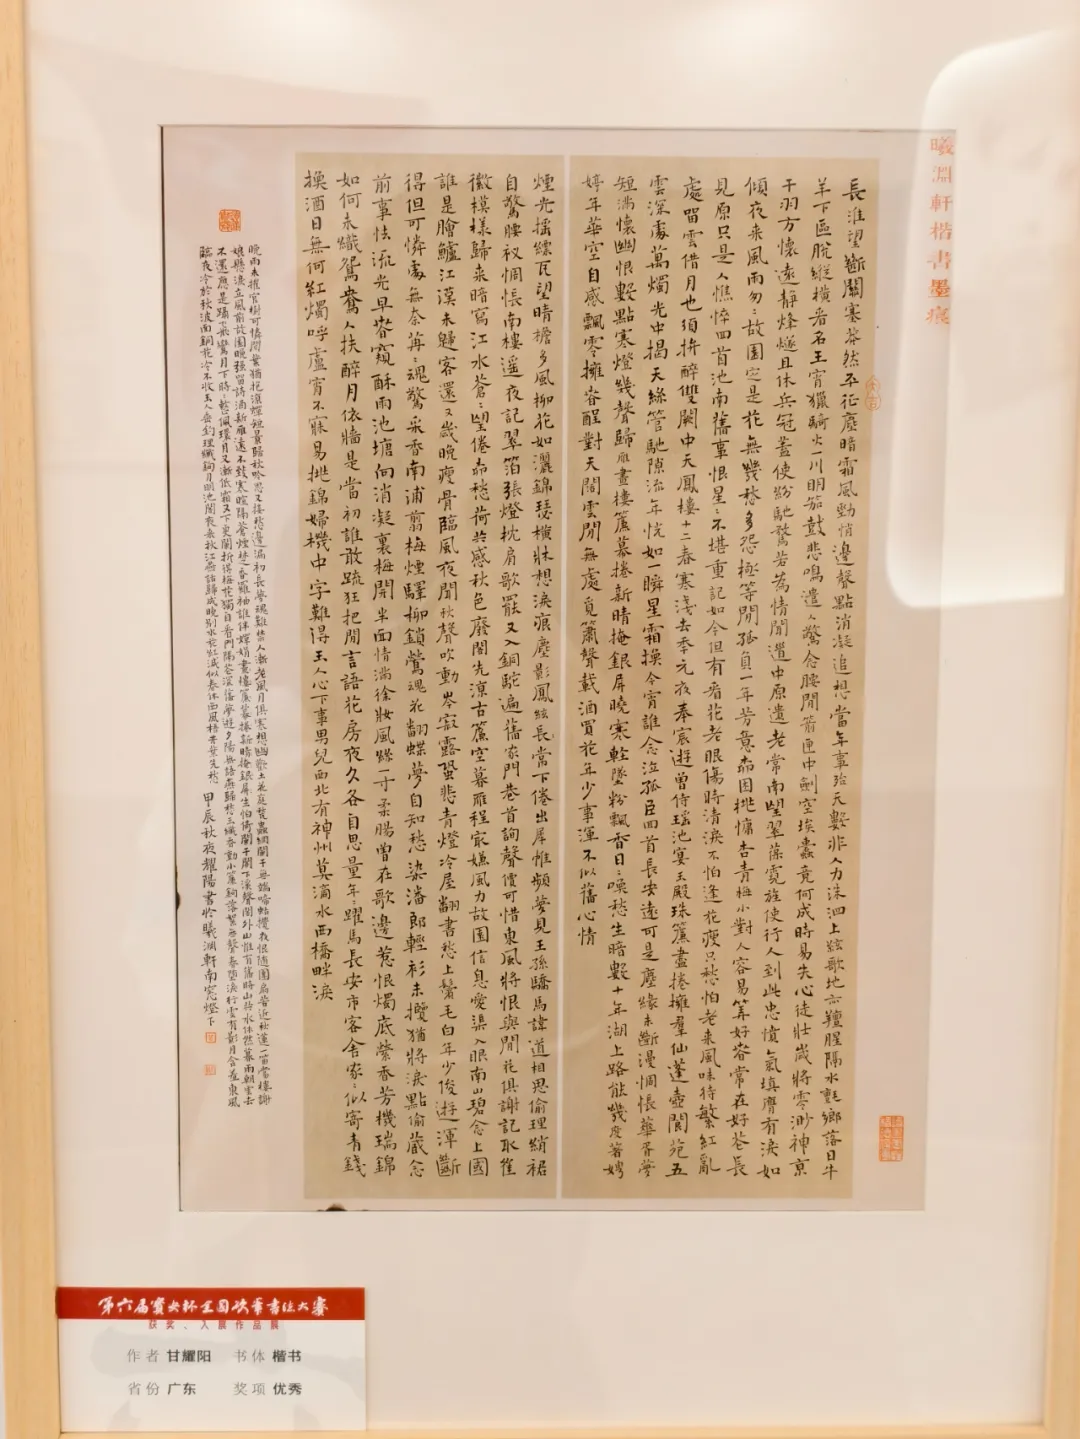 曦淵軒楷書墨痕
長淮望斷關塞莽然平征塵暗霜風勁悄邊聲黯消凝追想當年事殆天數非人力洙泗上絃歌地亦羶腥隔水氈鄉落日牛
羊下區脫縱橫看名王宵獵騎火一川明笳鼓悲鳴遣人驚念腰間箭匣中劍空埃蠹竟何成時易失心徒壯歲將零渺神京
干羽方懷遠靜烽燧且休兵冠蓋使紛馳騖若為情聞道中原遺老常南望翠葆霓旌使行人到此忠憤氣填膺有淚如
傾夜來風雨匆〻故園定是花無幾愁多怨極等閒孤負一年芳意柳困桃慵杏青梅小對人容易算好春常在好花長
見原只是人憔悴回首池南舊事恨星〻不堪重記如今但有看花老眼傷時清淚不怕逢花瘦只愁怕老來風味待繁紅亂
處留雲借月也須拚醉雙闕中天鳳樓十二春寒淺去年元夜奉宸遊曾侍瑤池宴玉殿珠簾盡捲擁羣仙蓬壺閬苑五
雲深處萬燭光中揭天絲管馳隙流年恍如一瞬星霜換今宵誰念泣孤臣回首長安遠可是塵緣未斷漫惆悵華胥夢
短滿懷幽恨數點寒燈幾聲歸雁畫樓簾幕捲新晴掩銀屏曉寒輕墜粉飄香日〻喚愁生暗數十年湖上路能幾度著娉
婷年華空自感飄零擁春醒對天闊雲閒無處覓簫聲載酒買花年少事渾不似舊心情
煙光搖縹瓦望晴檐多風柳花如灑錦瑟橫牀想淚痕塵影鳳絃長當下倦出犀帷頻夢見王孫驕馬諱道相思偷理綃裙
自驚腰衩惆悵南樓遙夜記翠箔張燈枕肩歌罷又入銅駝遍舊家門巷首詢聲價可惜東風將恨與閒花俱謝記取崔
徽模樣歸來暗寫江水蒼〻望倦柳愁荷共感秋色廢閣先涼古簾空暮雁程最嫌風力故園信息愛渠入眼南山碧念上國
誰是膾鱸江漢未歸客還又歲晚瘦骨臨風夜聞秋聲吹動岑寂露蛩悲青燈冷屋翻書愁上鬢毛白年少俊遊渾斷
得但可憐處無奈苒〻魂驚采香南浦剪梅煙驛柳鎖鶯魂花翻蝶夢自知愁染潘郎輕衫未攬猶將淚點偷藏念
前事怯流光早春窺酥雨池塘向消凝裏梅開半面情滿徐妝風絲一寸柔腸曾在歌邊惹恨燭底縈香芳機瑞錦
如何未織鴛鴦人扶醉月依牆是當初誰敢疏狂把閒言語花房夜久各自思量年〻躍馬長安市客舍家〻似寄青錢
換酒日無何紅燭呼盧宵不寐易挑錦婦機中字難得玉人心下事男兒西北有神州莫滴水西橋畔淚
晚雨未摧宮樹可憐閒葉猶抱涼蟬短景歸秋吟思又接愁邊漏初長夢魂難禁人漸老風月俱寒想幽歡土花庭甃蟲網闌干無端啼蛄攪夜恨隨團扇苦近秋蓮一笛當樓謝
娘懸淚立風前故園晚強留詩酒新雁遠不致寒暄隔蒼煙楚香羅袖誰伴嬋娟畫樓簾幕捲新晴掩銀屏生怕倚闌干閣下溪聲閣外山惟有舊時山共水依然暮雨朝雲去
不還應是躡飛鸞月下時〻整佩環月又漸低霜又下更闌折得梅花獨自看門隔花深舊夢遊夕陽無語燕歸愁玉纖香動小簾鉤落絮無聲春墮淚行雲有影月含羞東風
臨夜冷於秋波面銅花冷不收玉人垂釣理纖鉤月明池閣夜來秋江燕話歸成曉別水花紅減似春休西風梧井葉先愁 甲辰秋夜耀陽書於曦淵軒南窗燈下
获奖、入展作品展
作者 甘耀阳 书体 楷书
省份 广东 奖项 优秀